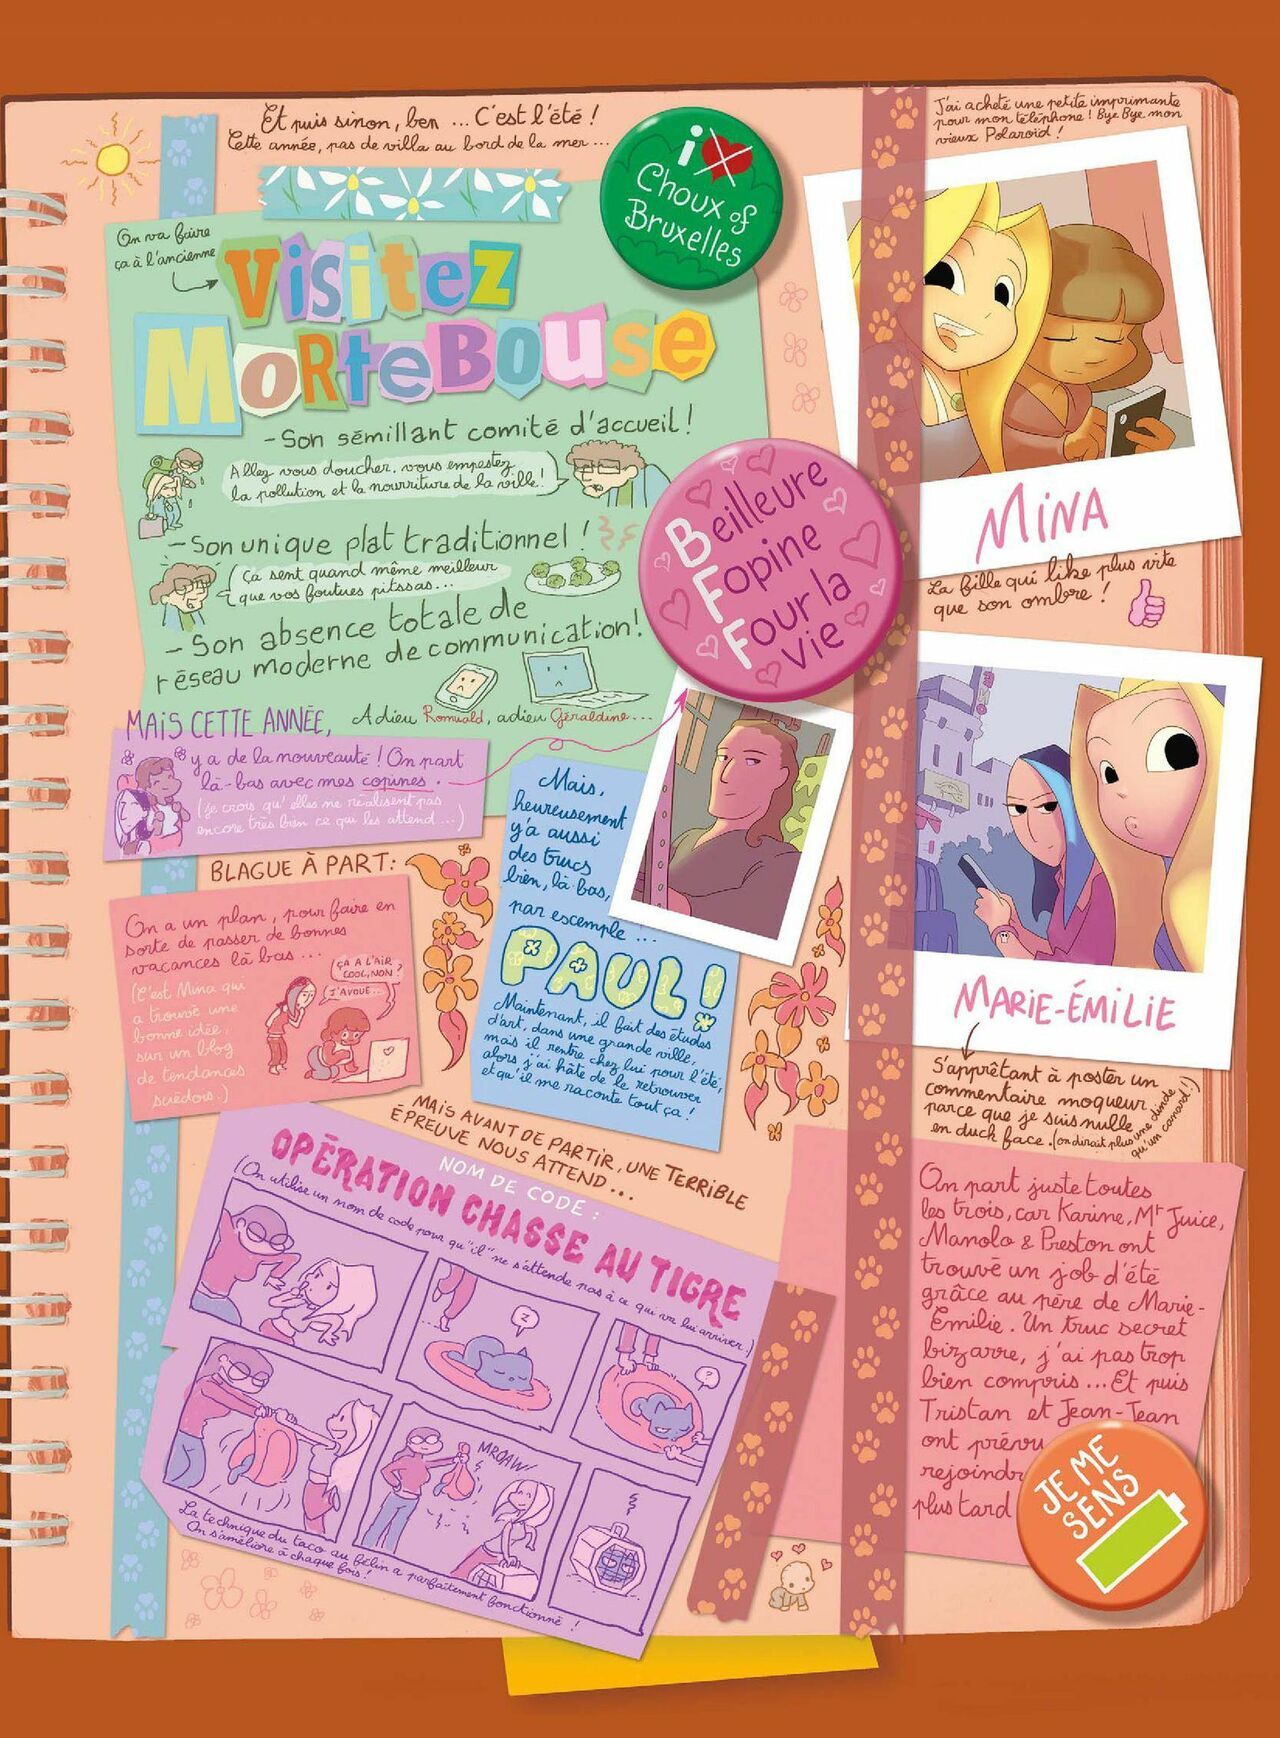 Et puis sinon, ben ... C'est l'été !
Cette année, pas de villa au bord de la mer ...
On va faire
ça à l'ancienne
Visitez
Mortebouse
- Son sémillant comité d'accueil !
Allez vous doucher, vous empestez
la pollution et la nourriture de la ville !
- Son unique plat traditionnel !
Ça sent quand même meilleur
que vos foutues pitssas...
- Son absence totale de
réseau moderne de communication !
Adieu Romuald, adieu Géraldine...
i
Choux of
Bruxelles
Beilleure
Fopine
Four la
vie
J'ai acheté une petite imprimante
pour mon téléphone ! Bye Bye mon
vieux Polaroïd !
MINA
La fille qui like plus vite
que son ombre !
MAIS CETTE ANNÉE,
y a de la nouveauté ! On part
là-bas avec mes copines.
(je crois qu'elles ne réalisent pas
encore très bien ce qui les attend...)
BLAGUE À PART :
On a un plan, pour faire en
sorte de passer de bonnes
vacances là bas ...
(C'est Mina qui
a trouvé une
bonne idée,
sur un blog
de tendances
suédois.)
ÇA A L'AIR
COOL, NON ?
J'AVOUE...
Mais,
heureusement
y'a aussi
des trucs
bien, là bas,
par escemple ...
PAUL !
Maintenant, il fait des études
d'art, dans une grande ville,
mais il rentre chez lui pour l'été,
alors j'ai hâte de le retrouver
et qu'il me raconte tout ça !
MARIE-ÉMILIE
S'apprêtant à poster un
commentaire moqueur
parce que je suis nulle
en duck face. (on dirait plus une dinde
qu'un canard !)
MAIS AVANT DE PARTIR, UNE TERRIBLE
ÉPREUVE NOUS ATTEND...
NOM DE CODE :
OPÉRATION CHASSE AU TIGRE
(On utilise un nom de code pour qu'"il" ne s'attende pas à ce qui va lui arriver !)
Z
?
MROAW!
La technique du taco au félin a parfaitement fonctionné !
On s'améliore à chaque fois !
On part juste toutes
les trois, car Karine, Mr Juice,
Manolo & Preston ont
trouvé un job d'été
grâce au père de Marie-
Émilie. Un truc secret
bizarre, j'ai pas trop
bien compris ... Et puis
Tristan et Jean-Jean
ont prévu
rejoindr
plus tard
JE ME
SENS